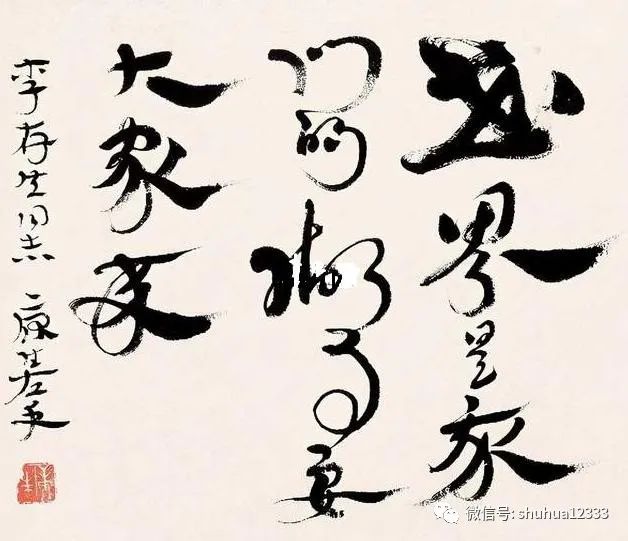 世界是我
们的办事要
大家来
李存生同志 康生左手
微信号: shuhua12333